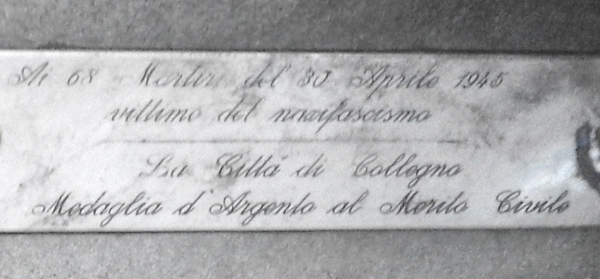 Ai 68 Martiri del 30 Aprile 1945
vittime del nazifascismo
La Città di Collegno
Medaglia d'Argento al Merito Civile